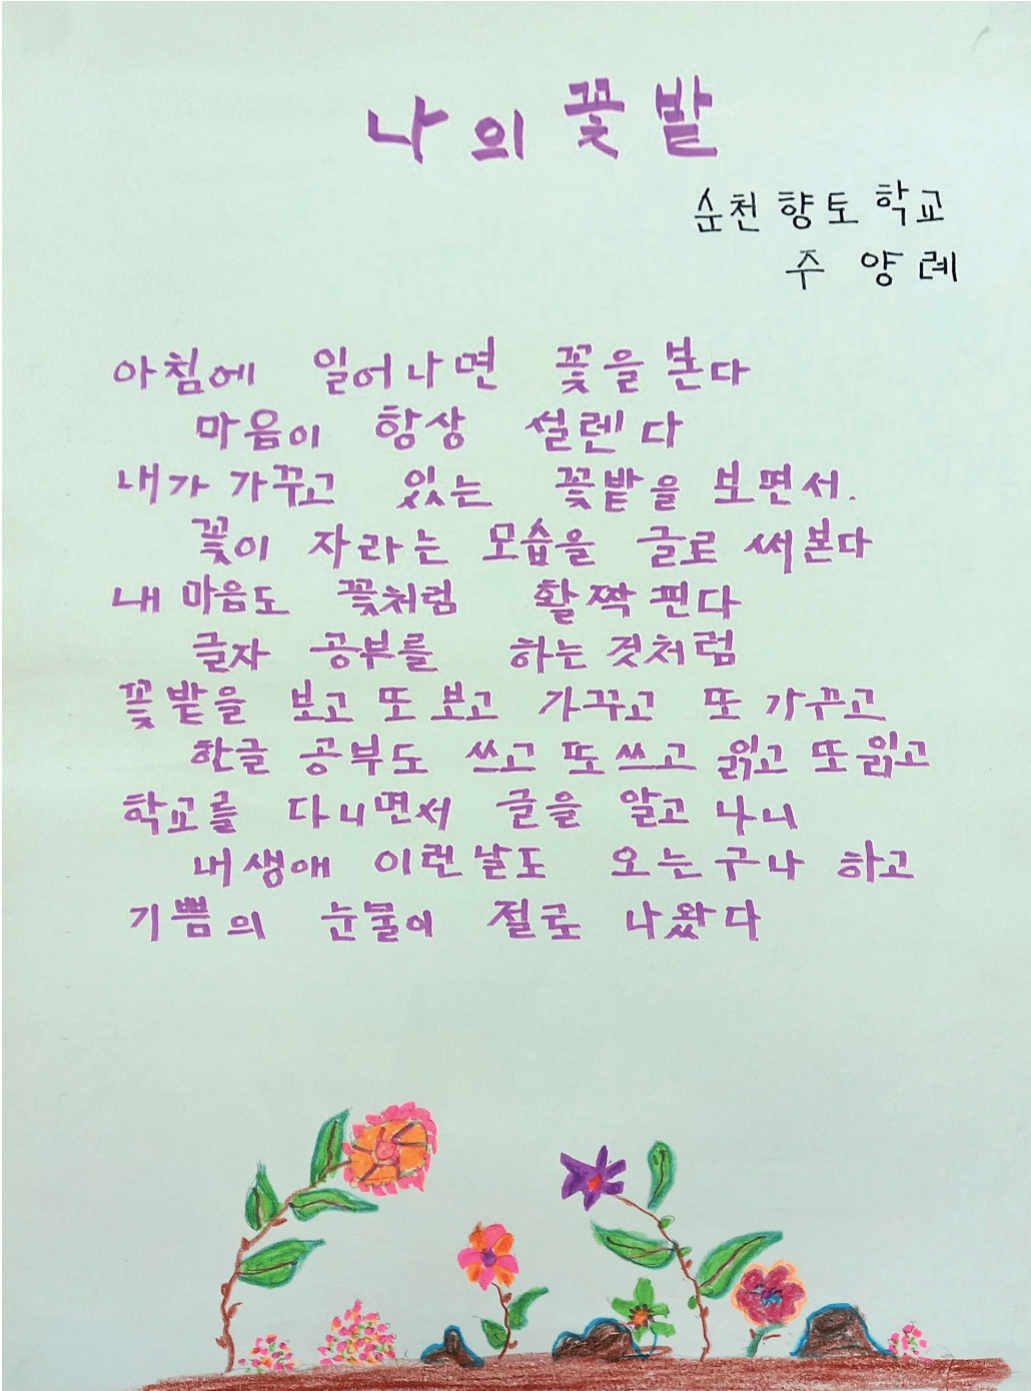 나의 꽃밭
순천향토학교
주양례
아침에 일어나면 꽃을 본다
마음이 항상 설렌다
내가 가꾸고 있는 꽃밭을 보면서.
꽃이 자라는 모습을 글로 써본다
내 마음도 꽃처럼 활짝 핀다
글자 공부를 하는 것처럼
꽃밭을 보고 또 보고 가꾸고 또 가꾸고
한글 공부도 쓰고 또 쓰고 읽고 또 읽고
학교를 다니면서 글을 알고 나니
내 생애 이런 날도 오는구나 하고
기쁨의 눈물이 절로 나왔다